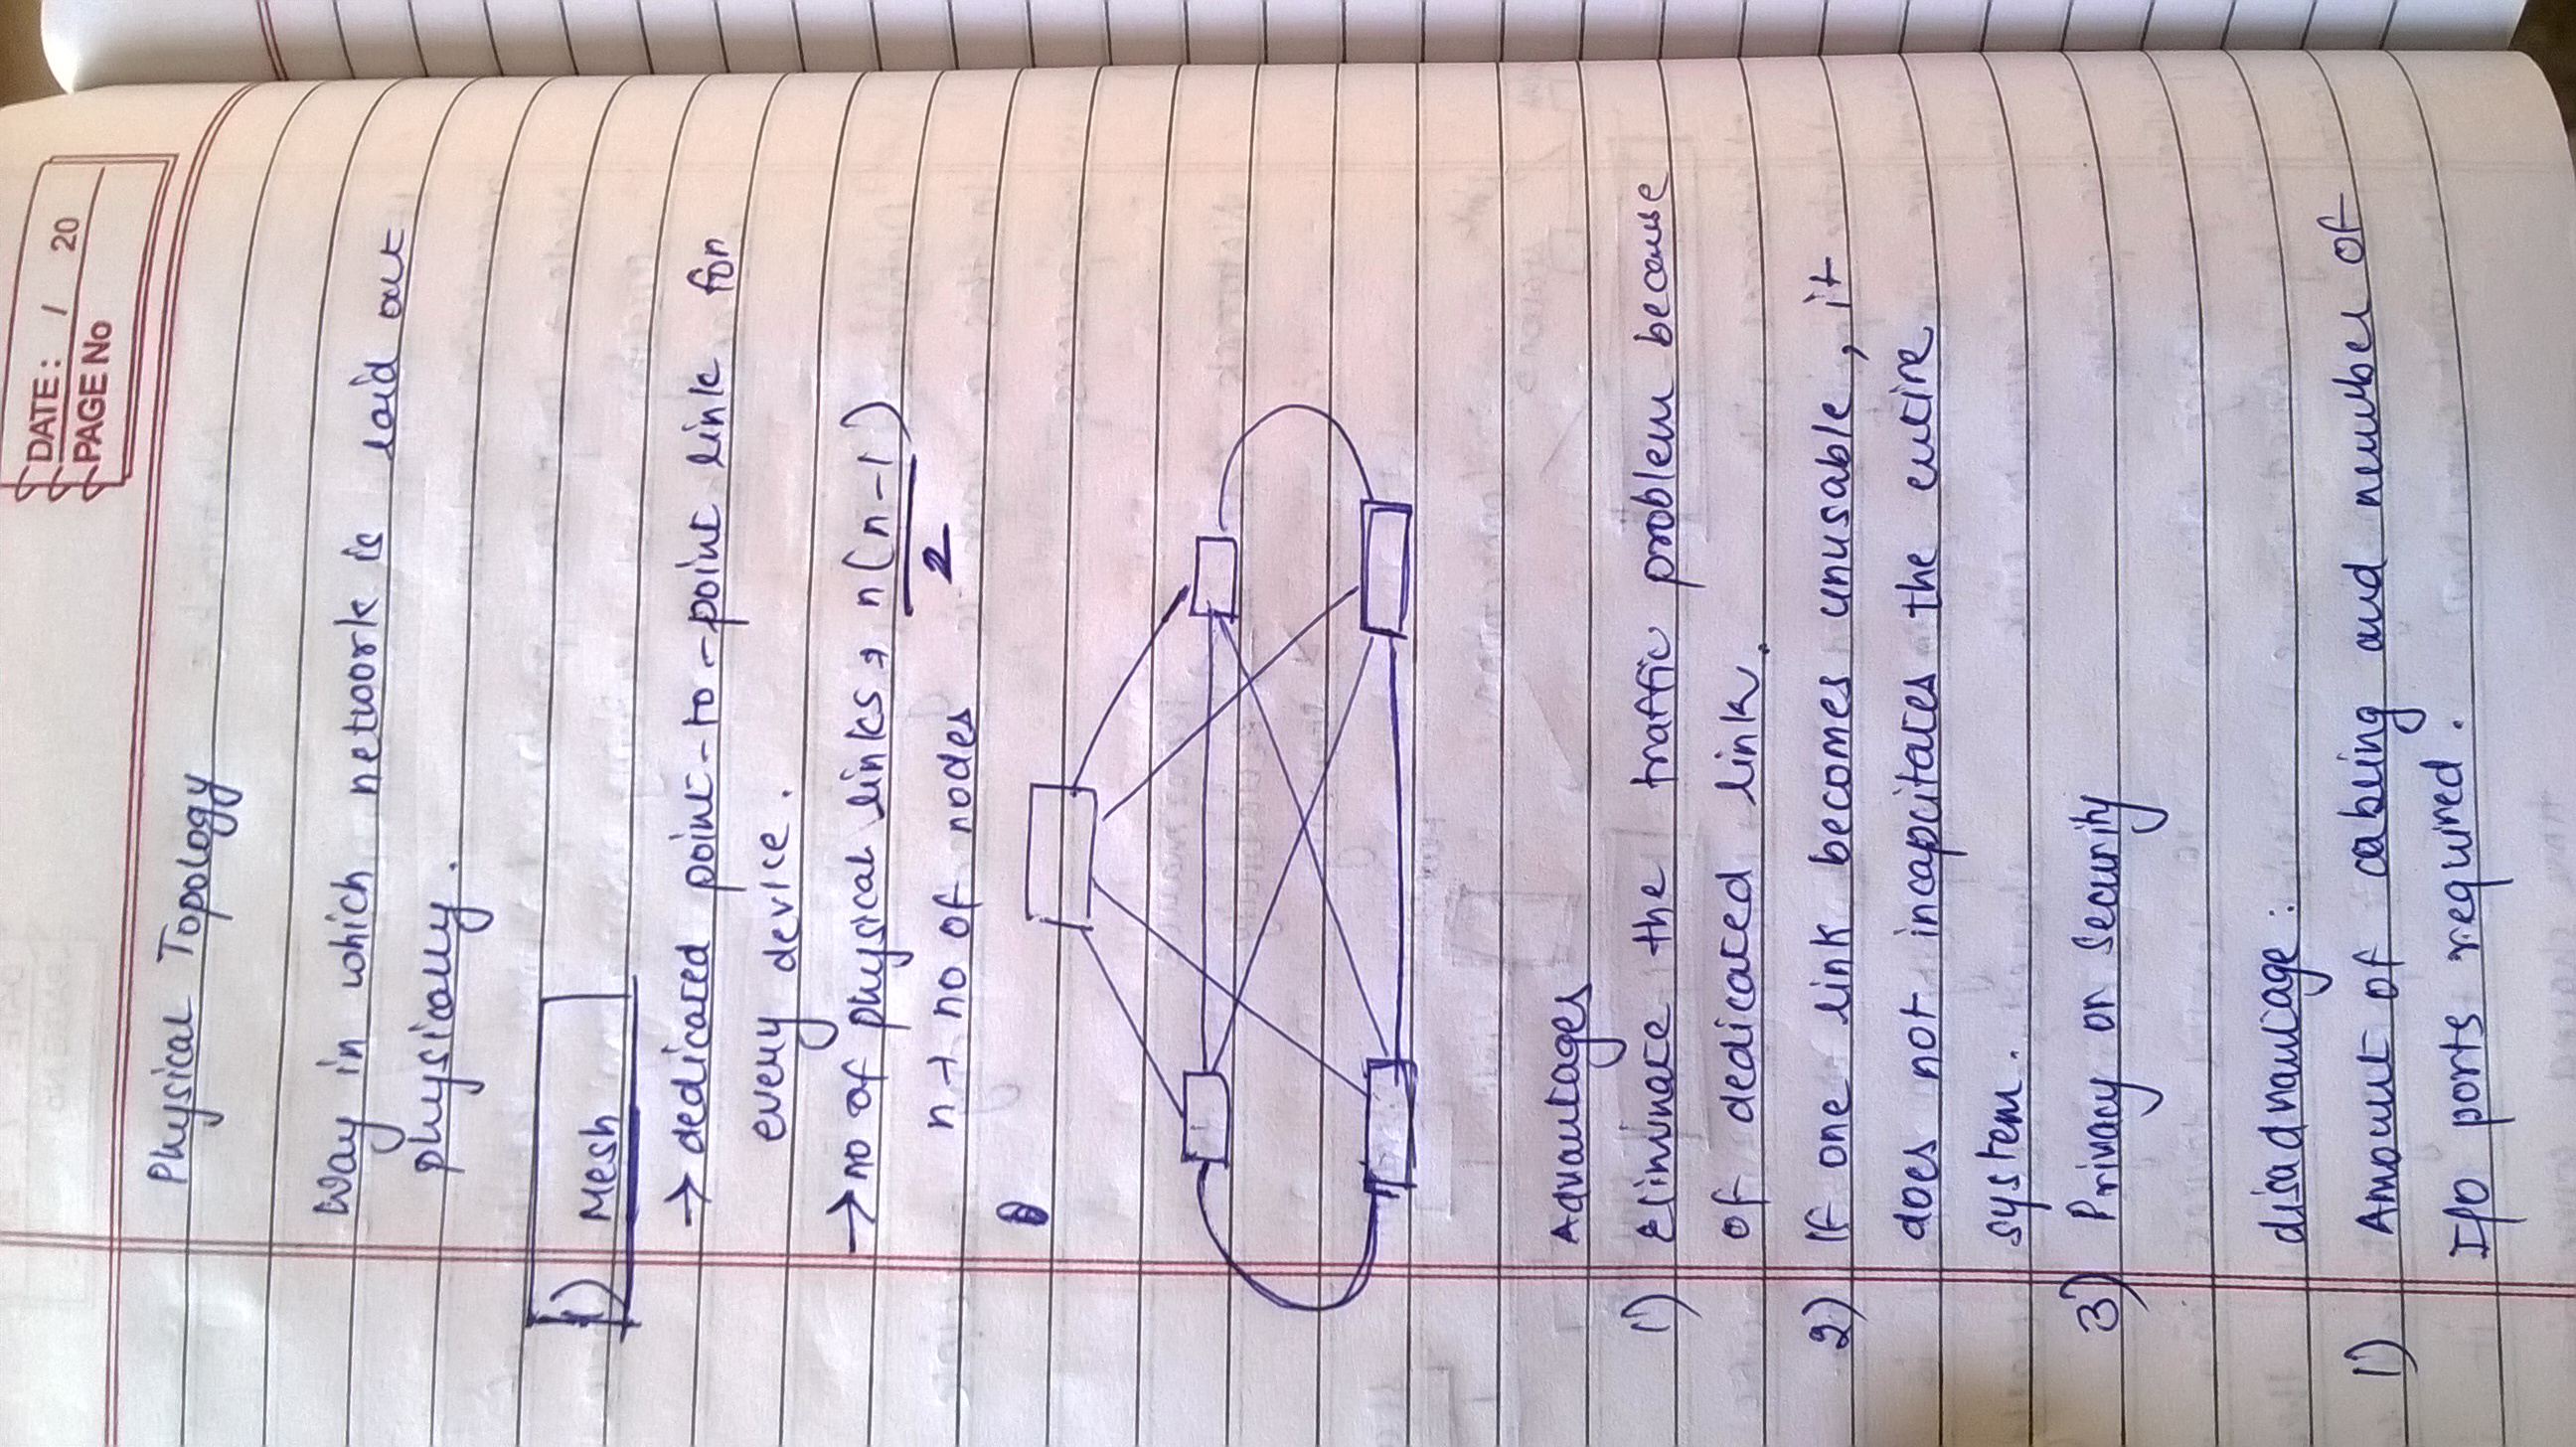 DATE: / 20
PAGE No
Physical Topology
Way in which network is laid out
physically.
1) Mesh
→ dedicated point-to-point link for
every device.
→ no of physical links → n(n-1)
2
n → no of nodes
Advantages
1) Eliminate the traffic problem because
of dedicated link.
2) If one link becomes unusable, it
does not incapcitates the entire
system.
3) Privacy or Security
disadvantage:
1) Amount of cabling and number of
I/O ports required.